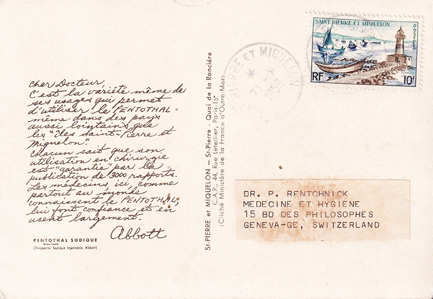 Cher Docteur,
C'est la variété même de
ses usages qui permet
d'utiliser le PENTOTHAL
même dans des pays
aussi lointains que
les "Iles Saint-Pierre et
Miquelon."
Chacun sait que son
utilisation en chirurgie
est "garantie" par la
publication de 3000 rapports.
Les médecins ici, comme
partout au monde
connaissent le PENTOTHAL,
lui font confiance et en
usent largement.
Abbott
PENTOTHAL SODIQUE
ST-PIERRE et MIQUELON — St-Pierre - Quai de la Roncière
C.A.P. 44, Rue Letellier, Paris-15e
(Cliché Ministère de la France d'Outre Mer).
SAINT-PIERRE ET MIQUELON
POSTES
RF
10F
PIERRE ET MIQUELON
DR. P. RENTCHNICK
MEDECINE ET HYGIENE
15 BD DES PHILOSOPHES
GENEVA-GE, SWITZERLAND